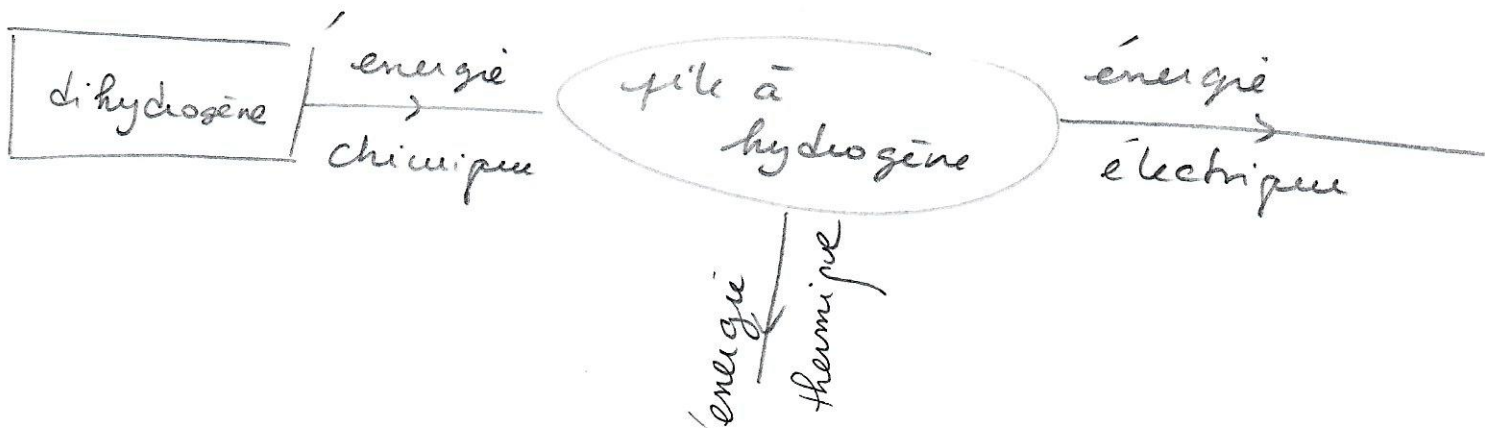 dihydrogène
énergie
chimique
pile à
hydrogène
énergie
électrique
énergie
thermique